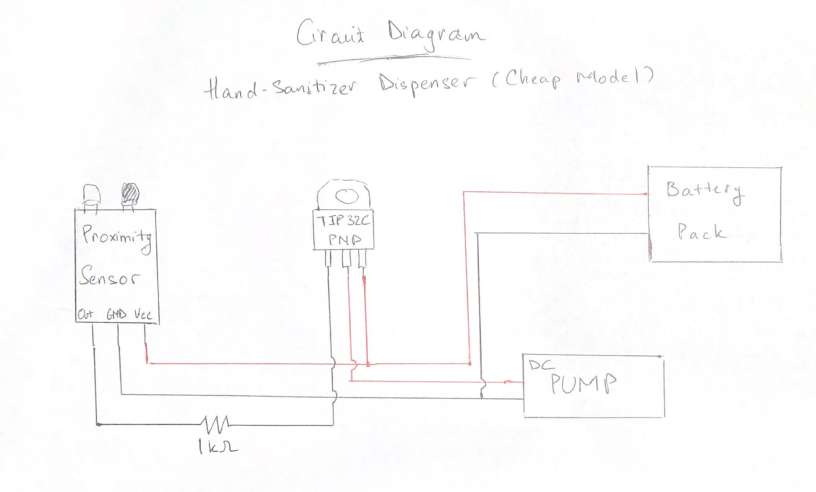 Circuit Diagram
Hand-Sanitizer Dispenser (Cheap Model)
Proximity
Sensor
Out GND Vcc
TIP32C
PNP
Battery
Pack
DC
PUMP
1kΩ